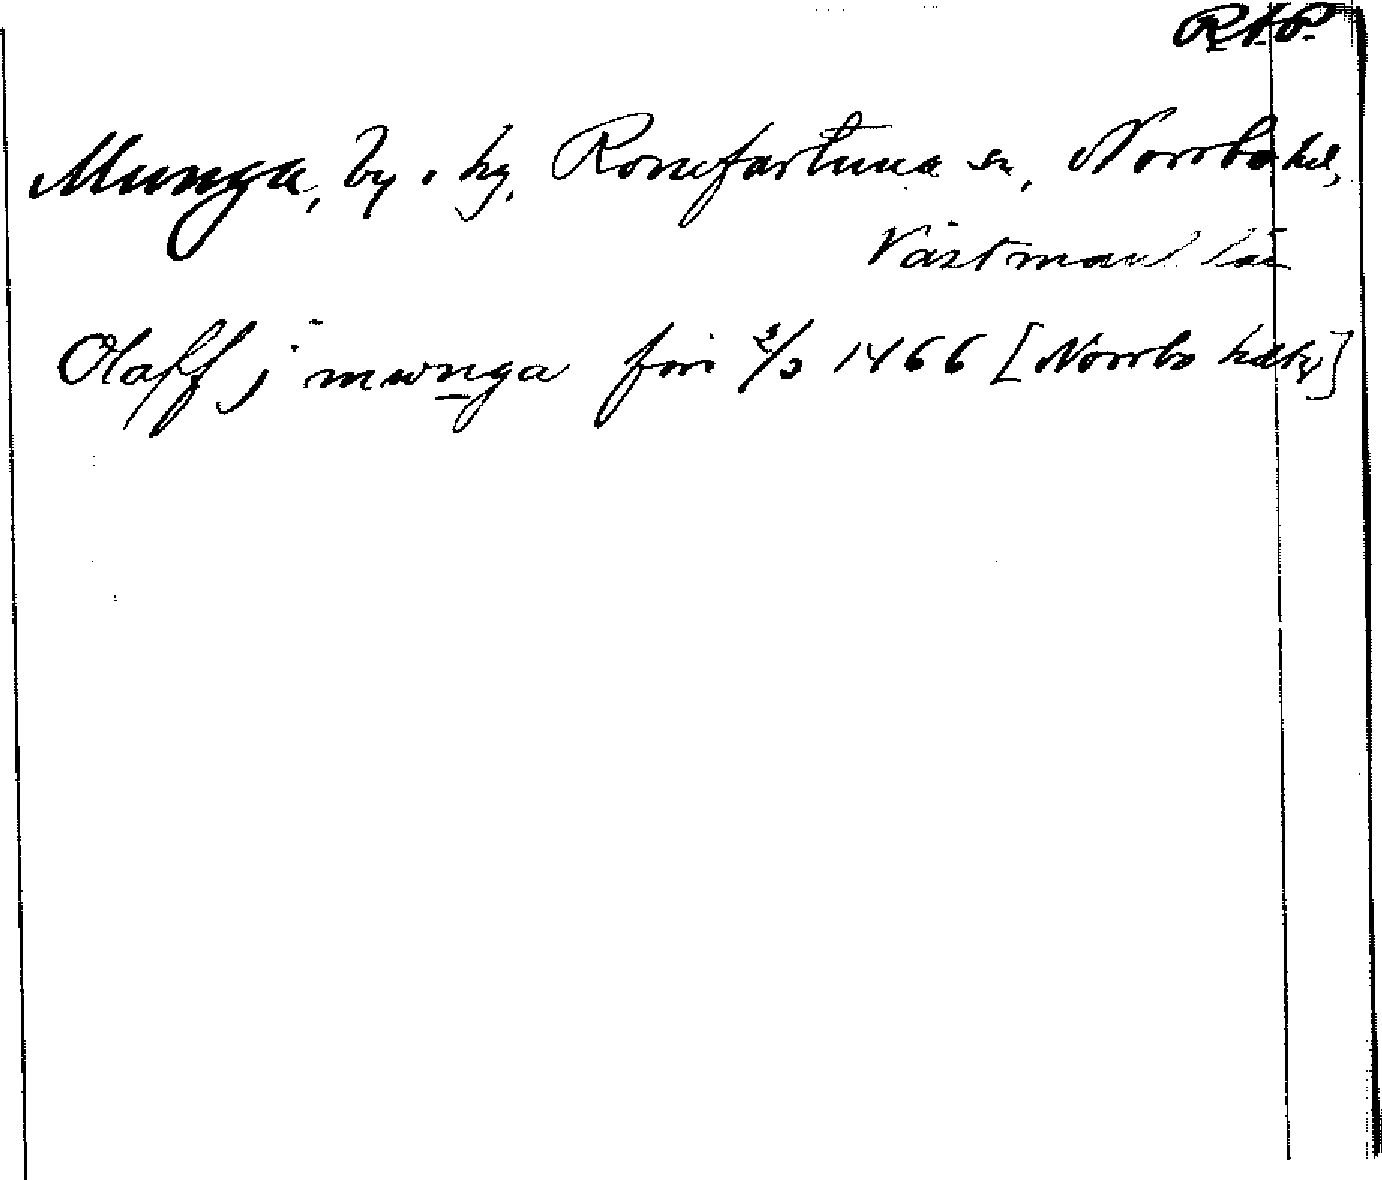 R.A.P.
Munga, by o. hg, Romfartuna sn, Norrbo hd,
Västmanl län
Olaff j mwnga före 3/3 1466 [Norrbo hdtg]